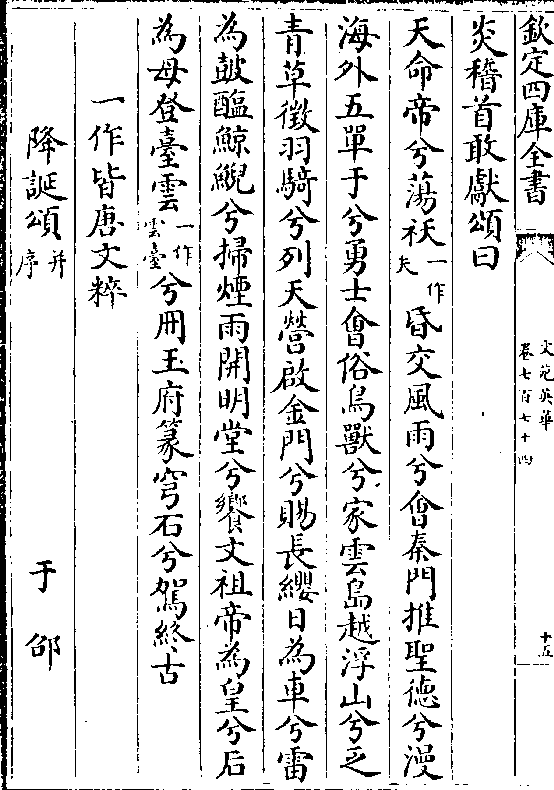 欽定四庫全書
文苑英華
卷七百七十四
十五
炎稽首敢獻頌曰
天命帝兮蕩祅一作夭昏交風雨兮會秦門推聖德兮漫
海外五單于兮勇士會俗鳥獸兮家雲島越浮山兮乏
青草徵羽騎兮列天營啟金門兮賜長纓日為車兮雷
為鼓醢鯨鯢兮掃煙雨開明堂兮饗文祖帝為皇兮后
為母登臺雲一作雲臺兮冊玉府篆穹石兮駕終古
一作皆唐文粹
降誕頌并序 于邵